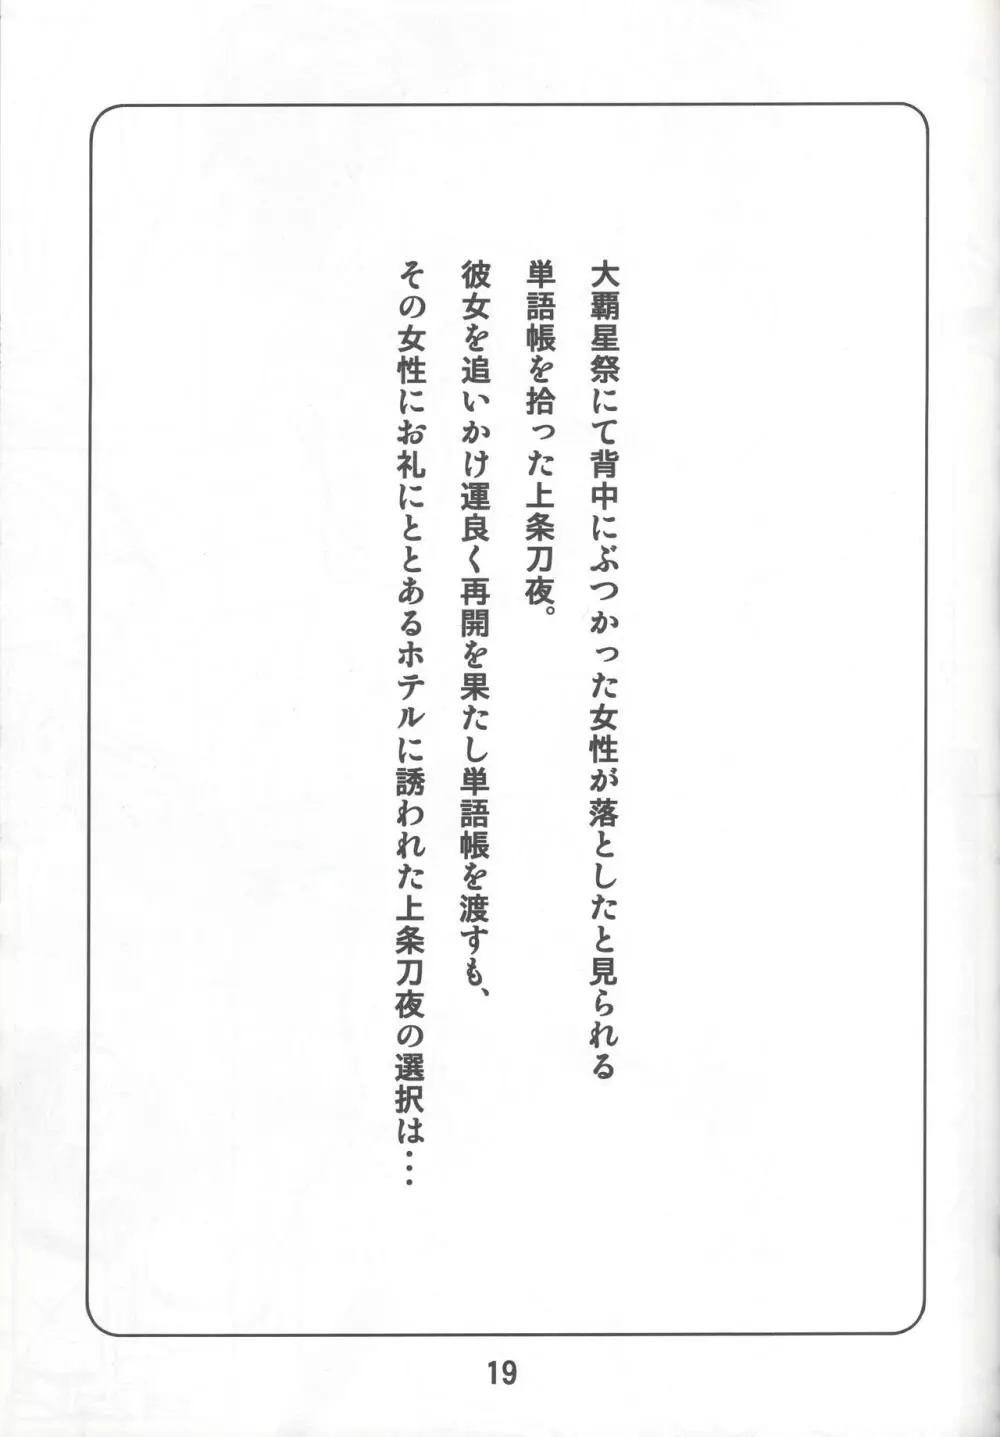 大覇星祭にて背中にぶつかった女性が落としたと見られる
単語帳を拾った上条刀夜。
彼女を追いかけ運良く再開を果たし単語帳を渡すも、
その女性にお礼にととあるホテルに誘われた上条刀夜の選択は…
19